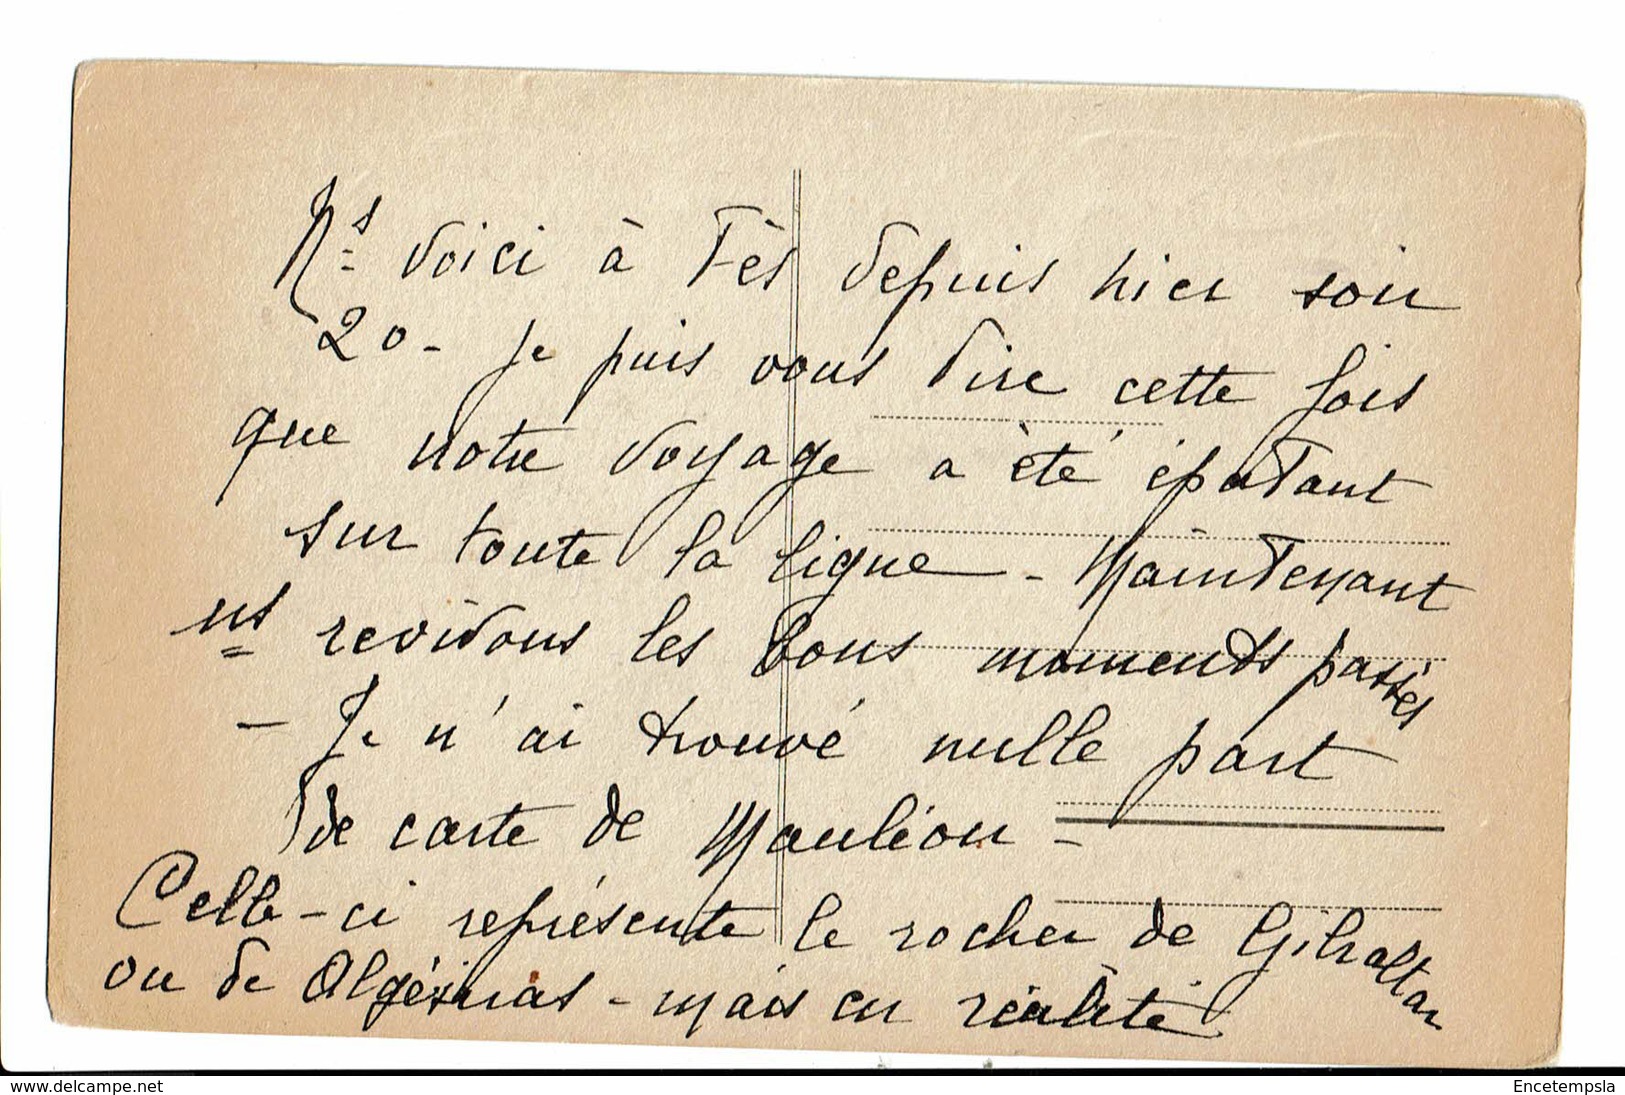 Ns voici à Fès depuis hier soir
20 - Je puis vous dire cette fois
que notre voyage a été épatant
sur toute la ligne - Maintenant
ns revivons les bons moments passés
- Je n'ai trouvé nulle part
de carte de Mauléon -
Celle-ci représente le rocher de Gibraltar
ou de Algésiras - mais en réalité
delcampe.net
Encetempsla